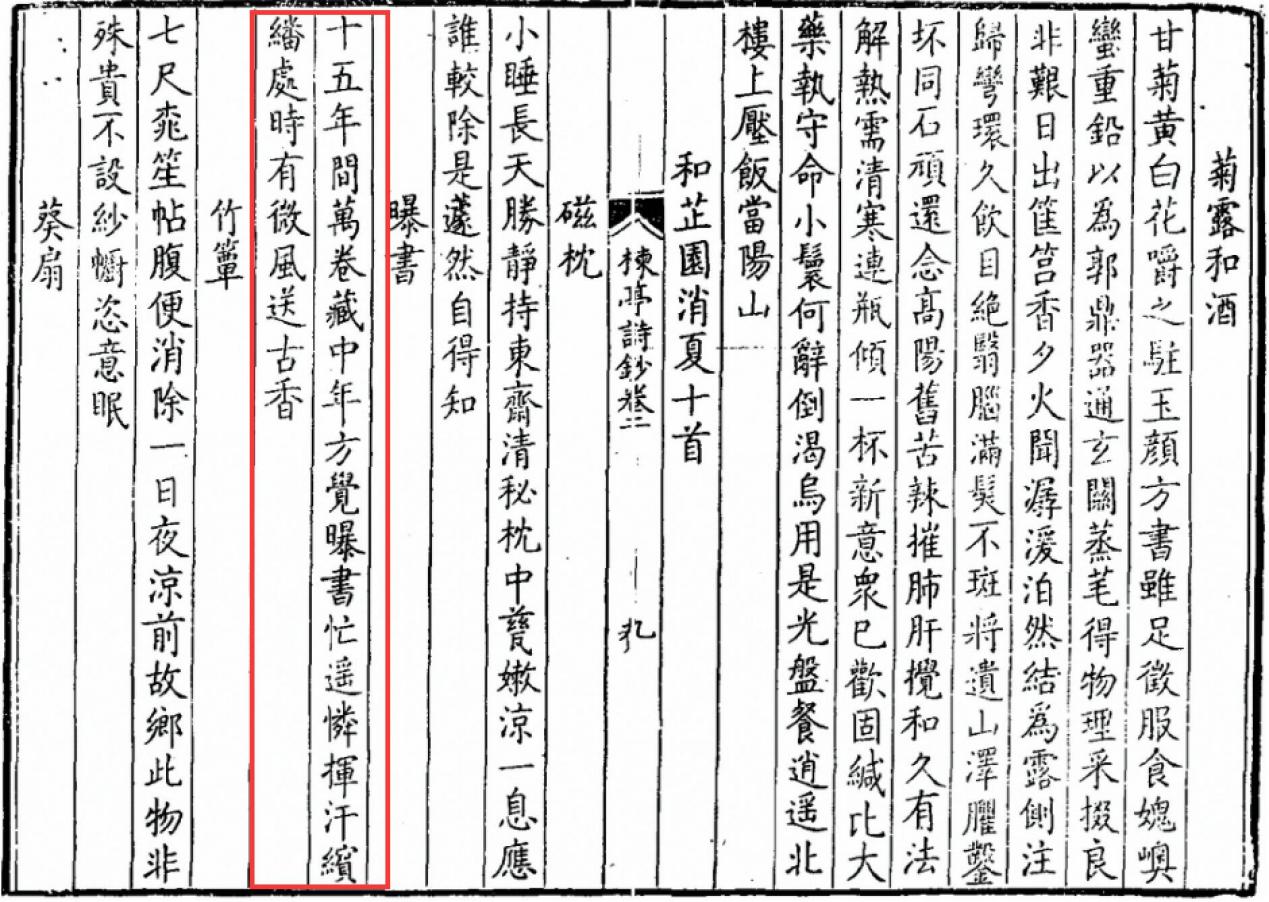 菊露和酒
甘菊黄白花嚼之駐玉顔方書雖足徵服食媿嶼
蠻重鉛以為郭鼎器通玄關蒸芼得物理采掇良
非艱日出筐筥香夕火聞潺湲泊然結為露側注
歸彎環久飲目絶翳腦滿髮不斑將遺山澤臞鑿
坏同石頑還念高陽舊苦辣摧肺肝攪和久有法
解熱需清寒連瓶傾一杯新意衆已歡固緘比大
藥執守命小鬟何辭倒渴烏用是光盤餐逍遥北
樓上壓飯當陽山
和芷園消夏十首
楝亭詩鈔卷二
九
磁枕
小睡長天勝靜持東齋清秘枕中甆嫩涼一息應
誰較除是蘧然自得知
曝書
十五年間萬卷藏中年方覺曝書忙遥憐揮汗繽
繙處時有微風送古香
竹簟
七尺桃笙帖腹便消除一日夜涼前故鄉此物非
殊貴不設紗幮恣意眠
葵扇